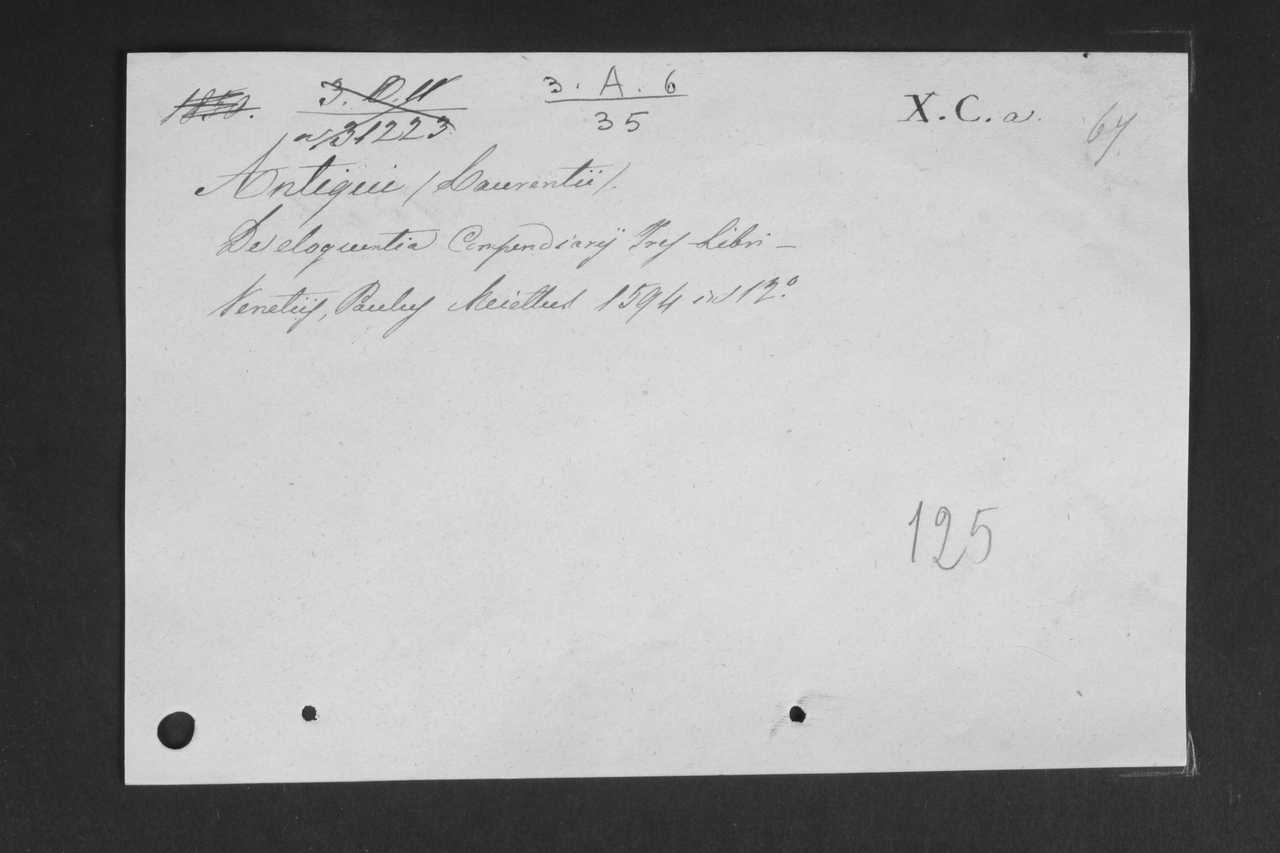 1850. 3.D.11 3. A. 6 X.C. a. 67
n/31223 35
Antiquii (Laurentii).
De eloquentia Compendiarij Tres Libri –
Venetijs, Paulus Meiettus 1594 in 12.º
125